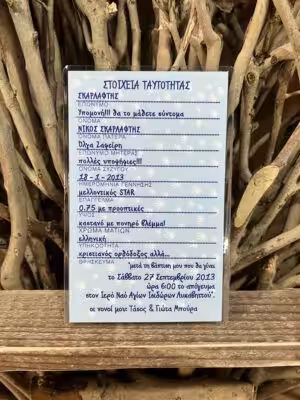 ΣΤΟΙΧΕΙΑ ΤΑΥΤΟΤΗΤΑΣ
ΣΚΑΡΛΑΦΤΗΣ
ΕΠΩΝΥΜΟ
Υπομονή!!! θα το μάθετε σύντομα
ΟΝΟΜΑ
ΝΙΚΟΣ ΣΚΑΡΛΑΦΤΗΣ
ΟΝΟΜΑ ΠΑΤΕΡΑ
Όλγα Σαφείρη
ΕΠΩΝΥΜΟ ΜΗΤΕΡΑΣ
πολλές υποψήφιες!!!
ΟΝΟΜΑ ΣΥΖΥΓΟΥ
18 - 1 - 2013
ΗΜΕΡΟΜΗΝΙΑ ΓΕΝΝΗΣΗΣ
μελλοντικός STAR
ΕΠΑΓΓΕΛΜΑ
0.75 με προοπτικές
ΥΨΟΣ
καστανό με πονηρό βλέμμα!
ΧΡΩΜΑ ΜΑΤΙΩΝ
ελληνική
ΥΠΗΚΟΟΤΗΤΑ
χριστιανός ορθόδοξος αλλά...
ΘΡΗΣΚΕΥΜΑ
*μετά τη βάπτιση μου που θα γίνει
το Σάββατο 27 Σεπτεμβρίου 2013
ώρα 6:00 το απόγευμα
στον Ιερό Ναό Αγίων Ισιδώρων Λυκαβηττού*.
οι νονοί μου: Τάσος & Γιώτα Μπούρα